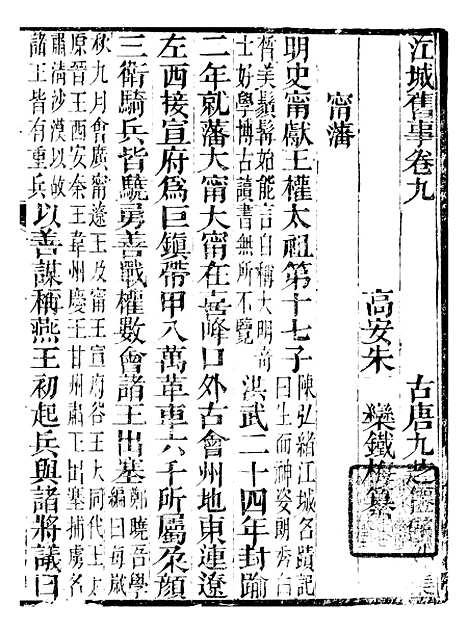 江城舊事卷九
古唐九芝僊
高安朱　欒鐵梅纂
甯藩
明史甯獻王權太祖第十七子陳弘緒江城名蹟記曰生而神姿朗秀白
皙美鬚髯始能言自稱大明奇士好學博古讀書無所不覽洪武二十四年封踰
二年就藩大甯大甯在喜峰口外古會州地東連遼
左西接宣府爲巨鎮帶甲八萬革車六千所屬朶顏
三衛騎兵皆驍勇善戰權數會諸王出塞鄭曉吾學編曰每歲
秋九月會廣甯遼王及甯王宣府谷王大同代王太原晉王西安秦王韋州慶王甘州肅王出塞捕虜名
肅清沙漠以故諸王皆有重兵以善謀稱燕王初起兵與諸將議曰